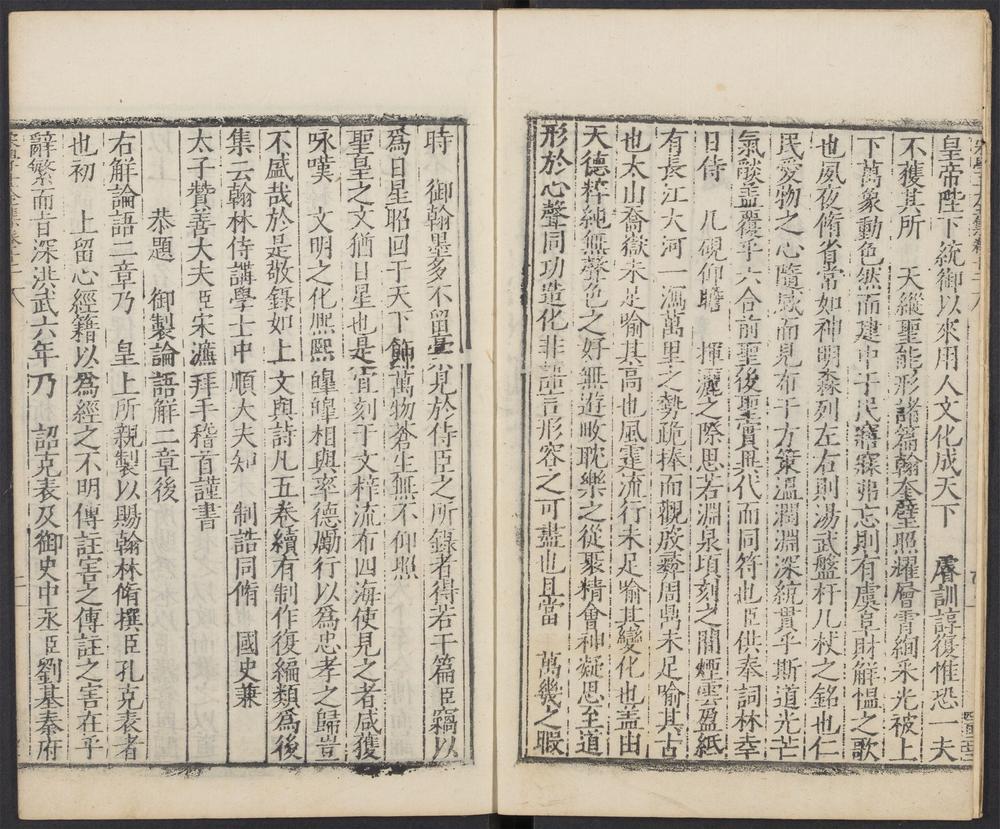 皇帝陛下統御以來用人文化成天下　睿訓諄復惟恐一夫
不獲其所　天縱聖能形諸篇翰奎璧照耀層霄絢采光被上
下萬象動色然而建中于民寤寐弗忘則有虞阜財解慍之歌
也夙夜脩省常如神明森列左右則湯武盤杅几杖之銘也仁
民愛物之心隨感而見布于方策溫潤淵深統貫乎斯道光芒
氣燄盖覆乎六合前聖後聖實異代而同符也臣供奉詞林幸
日侍　几硯仰瞻　揮灑之際思若淵泉頃刻之間煙雲盈紙
有長江大河一瀉萬里之勢跪捧而觀殷彞周鼎未足喻其古
也太山喬嶽未足喻其高也風霆流行未足喻其變化也盖由
天德粹純無聲色之好無遊畋耽樂之從聚精會神凝思至道
形於心聲同功造化非語言形容之可盡也且當　萬幾之暇
時　御翰墨多不留藁見於侍臣之所錄者得若干篇臣竊以
爲日星昭回于天下飾萬物蒼生無不仰照
聖皇之文猶日星也是宜刻于文梓流布四海使見之者咸獲
咏嘆　文明之化熈熈皥皥相與率德勵行以爲忠孝之歸豈
不盛哉於是敬錄如上文與詩凡五卷續有制作復編類爲後
集云翰林侍講學士中順大夫知　制誥同脩　國史兼
太子贊善大夫臣宋濂拜手稽首謹書
恭題　御製論語解二章後
右解論語二章乃　皇上所親製以賜翰林脩撰臣孔克表者
也初　上留心經籍以爲經之不明傳註害之傳註之害在乎
辭繁而旨深洪武六年乃　詔克表及御史中丞臣劉基秦府